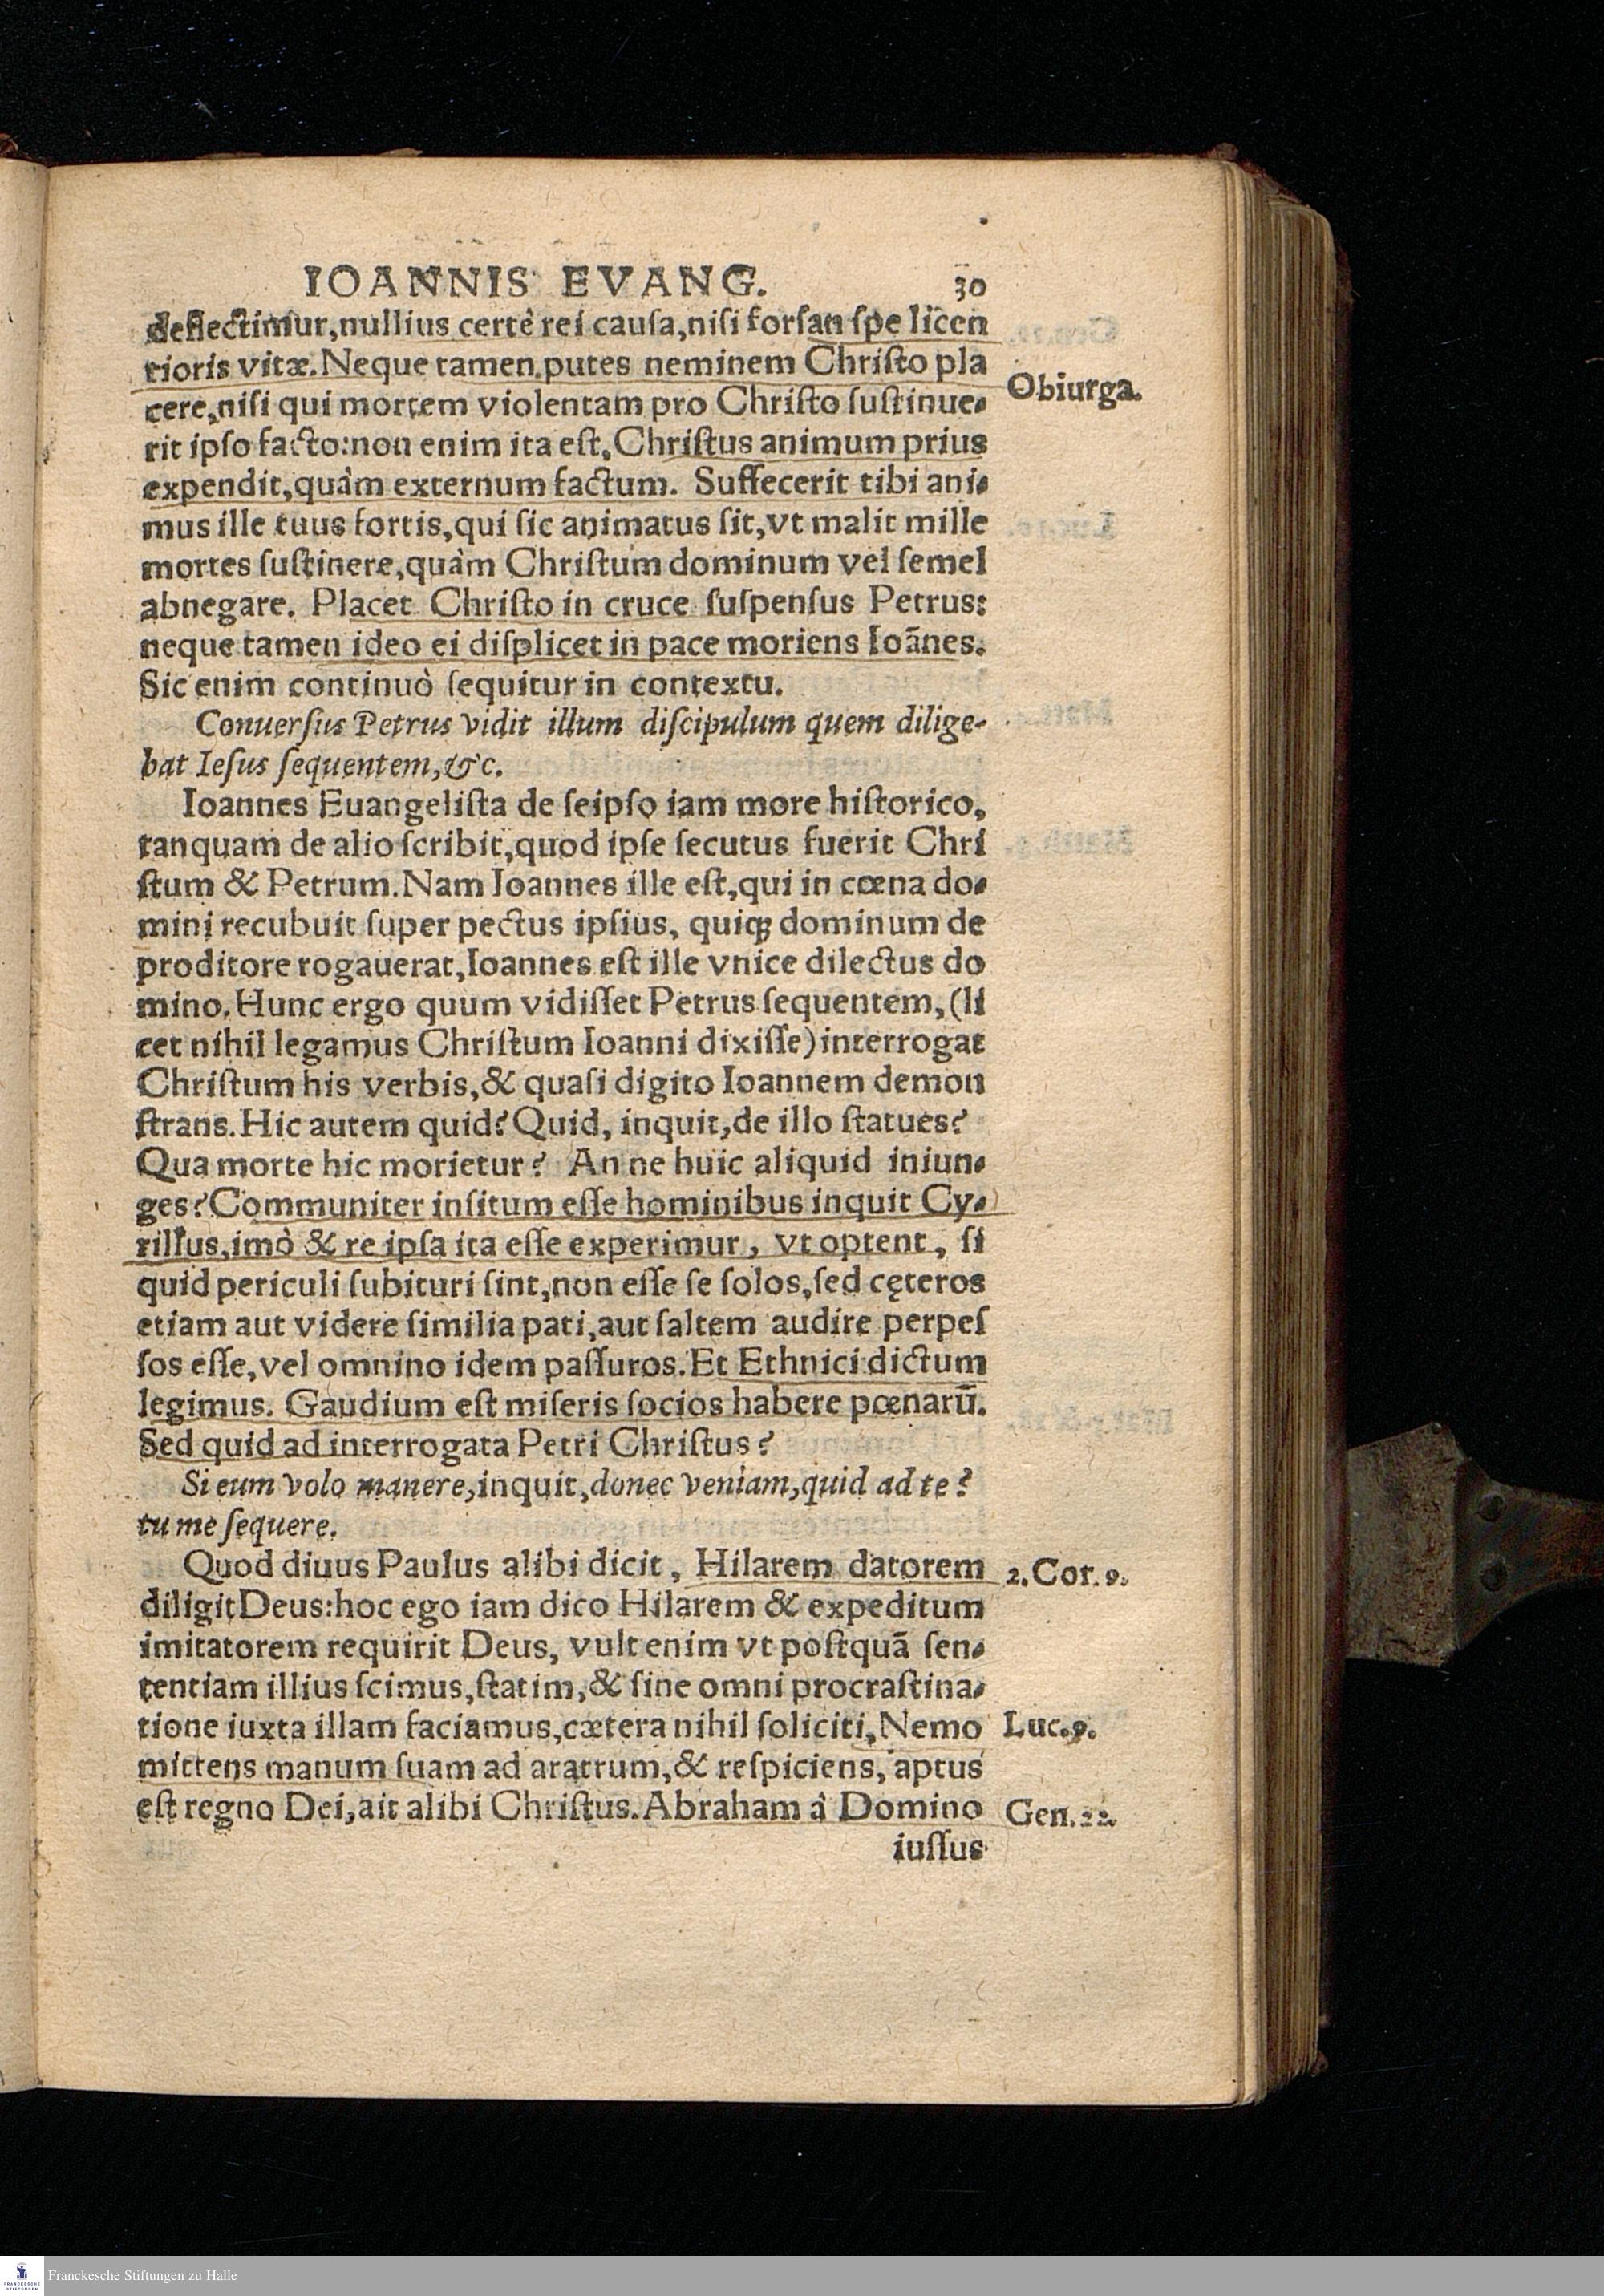 IOANNIS EVANG. 30
deflectimur,nullius certè rei cauſa,niſi forſan ſpe licen
tioris vitæ.Neque tamen putes neminem Chriſto pla
Obiurga.
cere,niſi qui mortem violentam pro Chriſto ſuſtinue⸗
rit ipſo facto:non enim ita eſt.Chriſtus animum prius
expendit,quàm externum factum. Suffecerit tibi ani⸗
mus ille tuus fortis,qui ſic animatus ſit,vt malit mille
mortes ſuſtinere,quàm Chriſtum dominum vel ſemel
abnegare. Placet Chriſto in cruce ſuſpenſus Petrus:
neque tamen ideo ei diſplicet in pace moriens Ioānes.
Sic enim continuò ſequitur in contextu.
Conuerſus Petrus vidit illum diſcipulum quem dilige-
bat Ieſus ſequentem,&c.
Ioannes Euangeliſta de ſeipſo iam more hiſtorico,
tanquam de alio ſcribit,quod ipſe ſecutus fuerit Chri
ſtum & Petrum.Nam Ioannes ille eſt,qui in cœna do⸗
mini recubuit ſuper pectus ipſius, quiqꝫ dominum de
proditore rogauerat,Ioannes eſt ille vnice dilectus do
mino.Hunc ergo quum vidiſſet Petrus ſequentem,(li
cet nihil legamus Chriſtum Ioanni dixiſſe)interrogat
Chriſtum his verbis,& quaſi digito Ioannem demon
ſtrans.Hic autem quid?Quid, inquit,de illo ſtatues?
Qua morte hic morietur? An ne huic aliquid iniun⸗
ges?Communiter inſitum eſſe hominibus inquit Cy⸗
rillus,imò & re ipſa ita eſſe experimur, vt optent, ſi
quid periculi ſubituri ſint,non eſſe ſe ſolos,ſed cęteros
etiam aut videre ſimilia pati,aut ſaltem audire perpeſ
ſos eſſe,vel omnino idem paſſuros.Et Ethnici dictum
legimus. Gaudium eſt miſeris ſocios habere pœnarū.
Sed quid ad interrogata Petri Chriſtus?
Si eum volo manere,inquit,donec veniam,quid ad te?
tu me ſequere.
Quod diuus Paulus alibi dicit, Hilarem datorem
2.Cor.9.
diligit Deus:hoc ego iam dico Hilarem & expeditum
imitatorem requirit Deus, vult enim vt poſtquā ſen⸗
tentiam illius ſcimus,ſtatim,& ſine omni procraſtina⸗
tione iuxta illam faciamus,cætera nihil ſoliciti,Nemo
Luc.9.
mittens manum ſuam ad aratrum,& reſpiciens, aptus
eſt regno Dei,ait alibi Chriſtus.Abraham à Domino
Gen.22.
iuſſus
Franckesche Stiftungen zu Halle